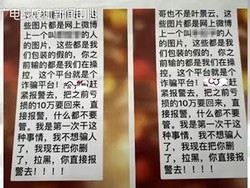 些图片都是网上微博
上一个叫
的人
的图片，这些都是我
们包装的假的，你之
前输的都是我们在操
控，这个平台就是个
诈骗平台！赶
紧报警去，把之前亏
损的10万要回来，直
接报警，什么都不要
管。我是第一次干这
种事情，我不想骗人
了，我现在把你删
了，拉黑，你直接报
警去！！！！
哥也不是叶景云。这
些图片都是网上微博
上一个叫
的人
的图片，这些都是我
们包装的假的，你之
前输的都是我们在操
控，这个平台就是个
诈骗平台！赶
紧报警去，把之前亏
损的10万要回来，直
接报警，什么都不要
管。我是第一次干这
种事情，我不想骗人
了，我现在把你删
了，拉黑，你直接报
警去！！！！